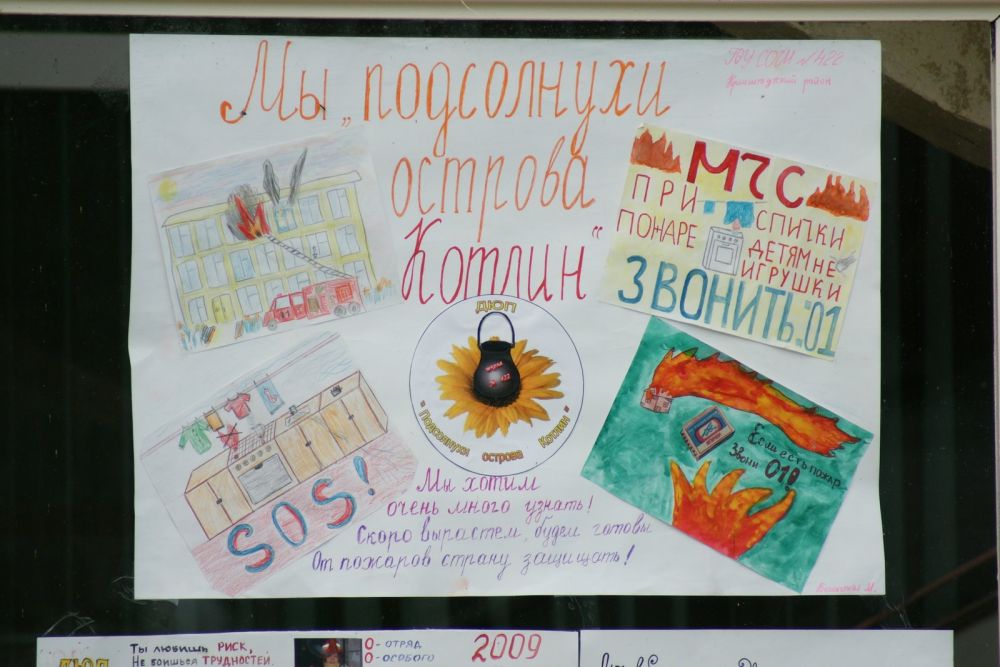 Мы „подсолнухи
острова
Котлин“
ГОУ СОШ №422
Кронштадтский район
МЧС
ПРИ
ПОЖАРЕ
СПИЧКИ
ДЕТЯМ НЕ
ИГРУШКИ
ЗВОНИТЬ:01
ДЮП
школа
№ 422
"Подсолнухи острова Котлин"
SOS!
Если есть пожар...
Звони 01!
Мы хотим
очень много узнать!
Скоро вырастем, будем готовы
От пожаров страну защищать!
ДЮП
Ты любишь РИСК,
Не боишься ТРУДНОСТЕЙ.
О- ОТРЯД
О- ОСОБОГО
2009